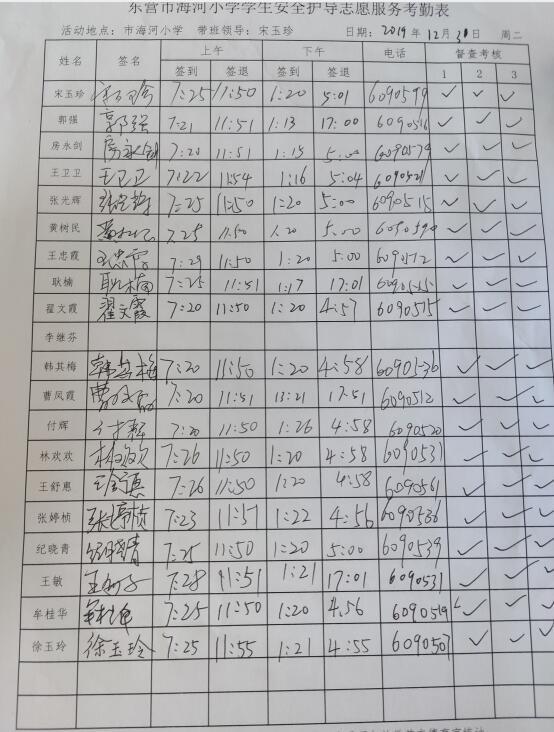 东营市海河小学学生安全护导志愿服务考勤表
活动地点：市海河小学 带班领导：宋玉珍 日期：2019年12月31日 周二
姓名 签名 上午 下午 电话 督查考核
签到 签退 签到 签退 1 2 3
宋玉珍 7:25 11:50 1:20 5:01 6090599 ✓ ✓ ✓
郭强 郭强 7:21 11:51 1:13 17:00 6090516 ✓ ✓ ✓
房永剑 房永剑 7:20 11:51 1:15 5:00 6090579 ✓ ✓ ✓
王卫卫 王卫卫 7:22 11:54 1:16 5:04 6090521 ✓ ✓ ✓
张光辉 7:25 11:50 1:20 5:00 6090515 ✓ ✓ ✓
黄树民 7.25 11.50 1.20 5.00 6090590 ✓ ✓ ✓
王忠霞 王忠霞 7:29 11:50 1:20 5:00 6090512 ✓ ✓ ✓
耿楠 耿楠 7:25 11:51 1:17 17:01 ✓ ✓ ✓
翟文霞 翟文霞 7:20 11:50 1:20 4:57 6090515 ✓ ✓ ✓
李继芬
韩其梅 韩其梅 7:20 11:50 1:20 4:58 6090536 ✓ ✓ ✓
曹凤霞 曹凤霞 7:20 11:51 13:21 17:51 6090512 ✓ ✓ ✓
付辉 付辉 7:20 11:50 1:26 4:58 6090520 ✓ ✓ ✓
林欢欢 林欢欢 7:26 11:50 1:20 4:58 6090531 ✓ ✓ ✓
王舒惠 7:26 11:50 1:20 4:58 6090561 ✓ ✓ ✓
张婷桢 张婷桢 7:23 11:51 1:22 4:56 6090536 ✓ ✓ ✓
纪晓青 纪晓青 7:25 11:50 1:20 5:00 6090539 ✓ ✓ ✓
王敏 7:28 11:51 1:21 17:01 6090531 ✓ ✓ ✓
牟桂华 7:25 11:50 1:20 4:56 6090519 ✓ ✓ ✓
徐玉玲 徐玉玲 7:25 11:55 1:21 4:55 6090507 ✓ ✓ ✓